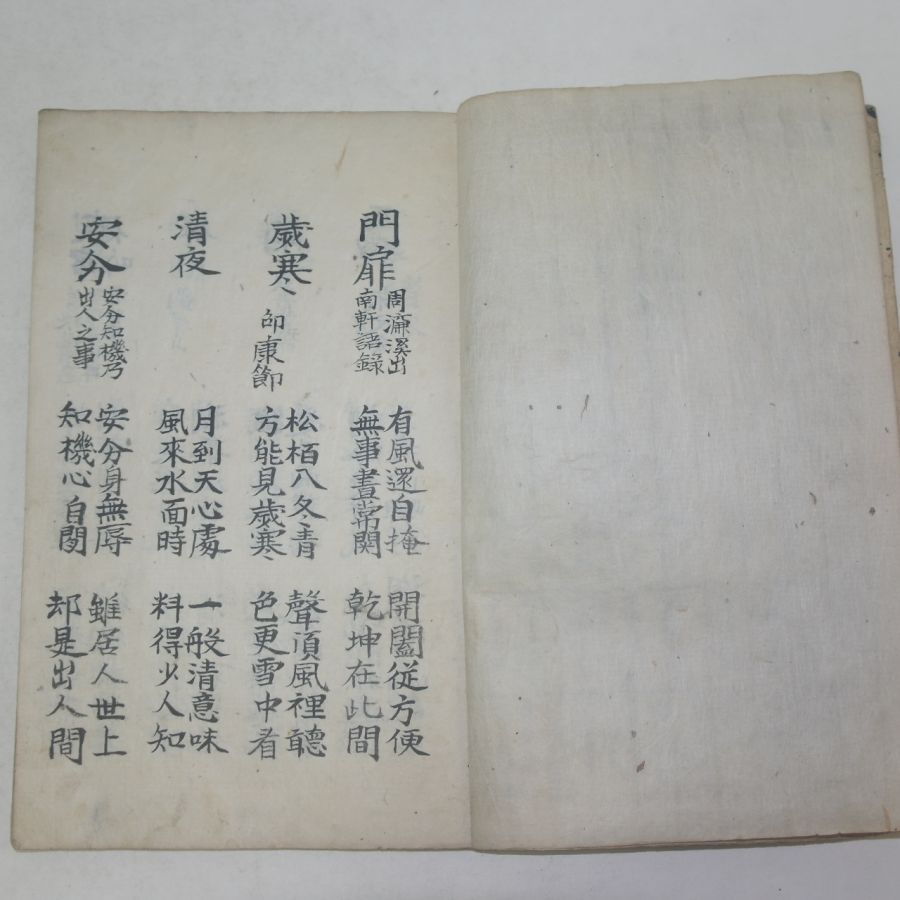 門扉
周濂溪出
南軒語錄
有風還自掩
無事晝常関
開闔従方便
乾坤在此間
歲寒
邵康節
松栢入冬青
方能見歲寒
聲須風裡聽
色更雪中看
清夜
月到天心處
風來水面時
一般清意味
料得少人知
安分
安分知機乃
出人之事
安分身無辱
知機心自閑
雖居人世上
却是出人間